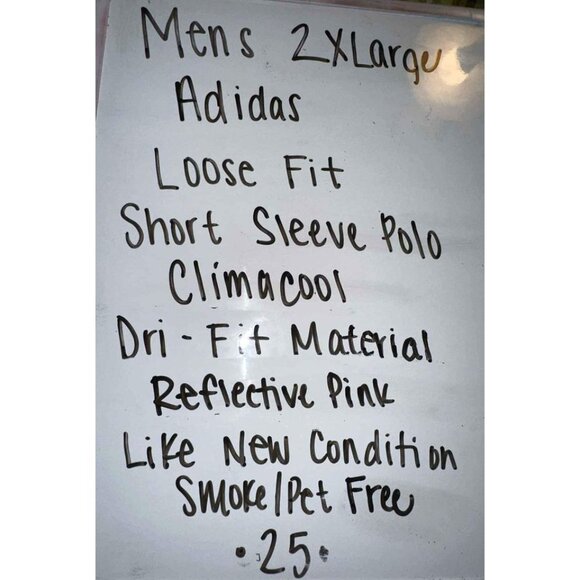 Mens 2XLarge
Adidas
Loose Fit
Short Sleeve Polo
Climacool
Dri-Fit Material
Reflective Pink
Like New Condition
Smoke/Pet Free
•25•